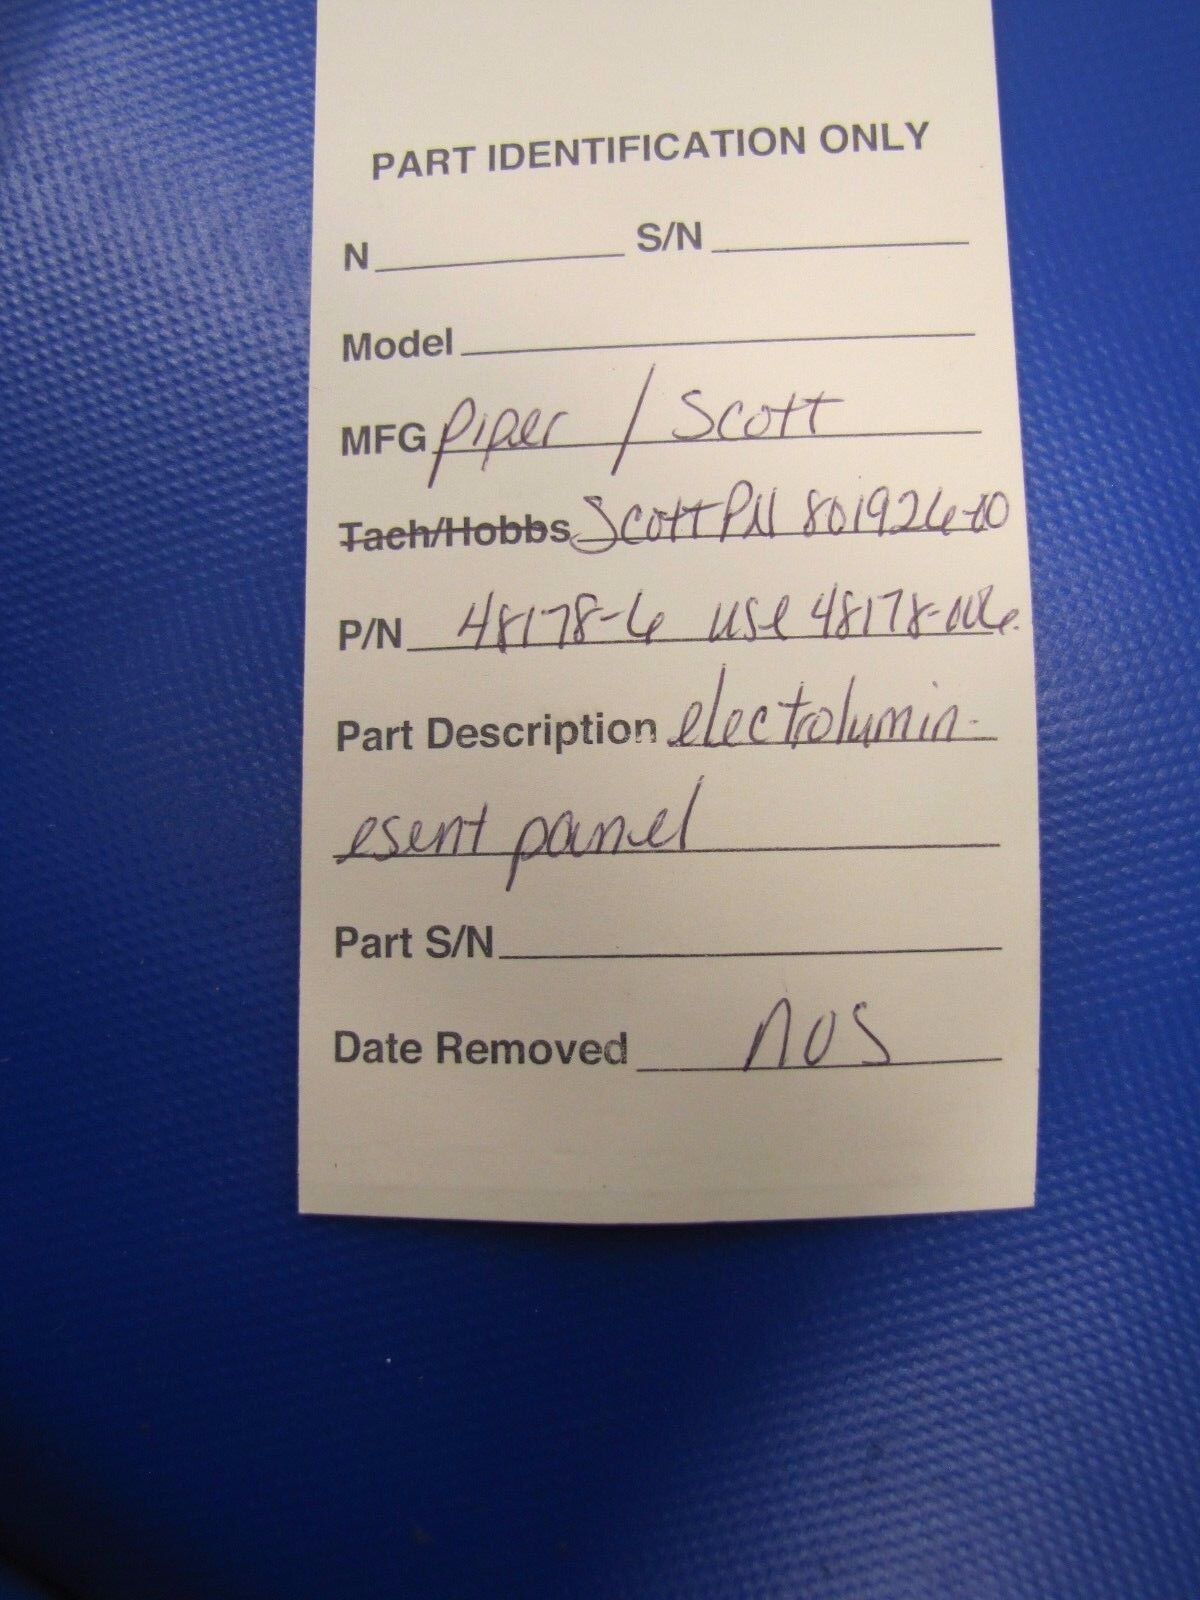 PART IDENTIFICATION ONLY
N S/N
Model
MFG Piper / Scott
Tach/Hobbs Scott PN 801926-00
P/N 48178-6 use 48178-006
Part Description electrolumin-
esent panel
Part S/N
Date Removed NOS